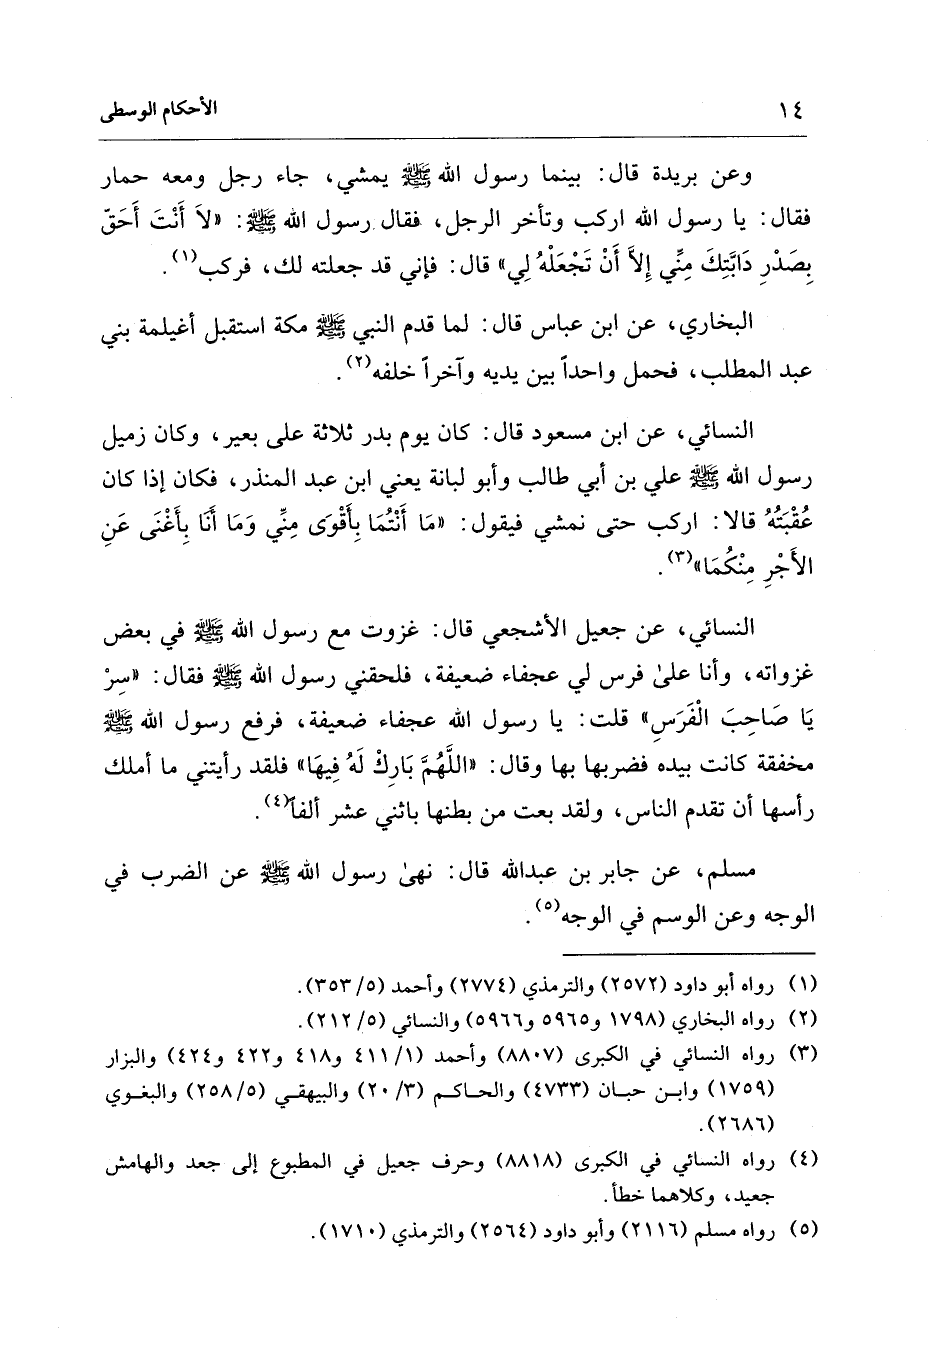 ١٤
الأحكام الوسطى
وعن بريدة قال: بينما رسول الله ﷺ يمشي، جاء رجل ومعه حمار
فقال: يا رسول الله اركب وتأخر الرجل، فقال رسول الله ﷺ: «لاَ أَنْتَ أَحَقّ
بِصَدْرِ دَابَّتِكَ مِنِّي إِلاَّ أَنْ تَجْعَلْهُ لِي» قال: فإني قد جعلته لك، فركب(١).
البخاري، عن ابن عباس قال: لما قدم النبي ﷺ مكة استقبل أغيلمة بني
عبد المطلب، فحمل واحداً بين يديه وآخراً خلفه(٢).
النسائي، عن ابن مسعود قال: كان يوم بدر ثلاثة على بعير، وكان زميل
رسول الله ﷺ علي بن أبي طالب وأبو لبانة يعني ابن عبد المنذر، فكان إذا كان
عُقْبَتُهُ قالا: اركب حتى نمشي فيقول: «مَا أَنْتُمَا بِأَقْوَى مِنِّي وَمَا أَنَا بِأَغْنَى عَنِ
الأَجْرِ مِنْكُمَا»(٣).
النسائي، عن جعيل الأشجعي قال: غزوت مع رسول الله ﷺ في بعض
غزواته، وأنا علىٰ فرس لي عجفاء ضعيفة، فلحقني رسول الله ﷺ فقال: «سِرْ
يَا صَاحِبَ الْفَرَسِ» قلت: يا رسول الله عجفاء ضعيفة، فرفع رسول الله ﷺ
مخفقة كانت بيده فضربها بها وقال: «اللَّهُمَّ بَارِكْ لَهُ فِيهَا» فلقد رأيتني ما أملك
رأسها أن تقدم الناس، ولقد بعت من بطنها باثني عشر ألفاً(٤).
مسلم، عن جابر بن عبدالله قال: نهىٰ رسول الله ﷺ عن الضرب في
الوجه وعن الوسم في الوجه(٥).
(١) رواه أبو داود (٢٥٧٢) والترمذي (٢٧٧٤) وأحمد (٥/ ٣٥٣).
(٢) رواه البخاري (١٧٩٨ و٥٩٦٥ و٥٩٦٦) والنسائي (٥/ ٢١٢).
(٣) رواه النسائي في الكبرى (٨٨٠٧) وأحمد (١/ ٤١١ و٤١٨ و٤٢٢ و٤٢٤) والبزار
(١٧٥٩) وابن حبان (٤٧٣٣) والحاكم (٣/ ٢٠) والبيهقي (٥/ ٢٥٨) والبغوي
(٢٦٨٦).
(٤) رواه النسائي في الكبرى (٨٨١٨) وحرف جعيل في المطبوع إلى جعد والهامش
جعيد، وكلاهما خطأ.
(٥) رواه مسلم (٢١١٦) وأبو داود (٢٥٦٤) والترمذي (١٧١٠).